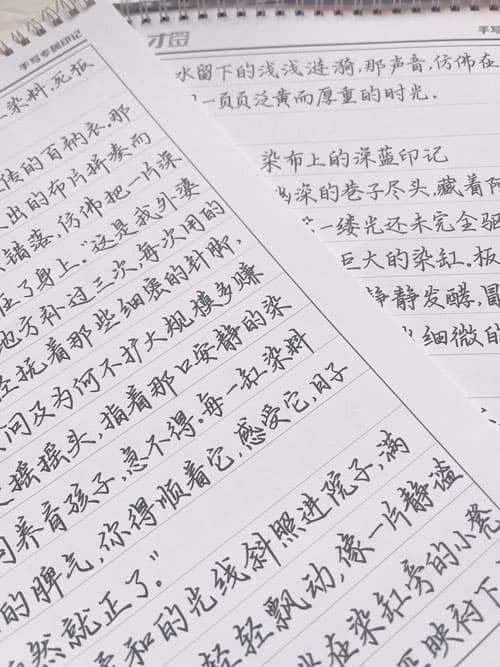 手写专属印记
染料,死板
传的百衲衣.那
出的布片拼凑而
错落,仿佛把一片深
在了身上."这是我外婆
地方补过三次,每次用的
抚着那些细密的针脚,
问及为何不扩大规模多赚
摇摇头,指着那口安静的染
同养育孩子,急不得.每一缸染料
的脾气,你得顺着它,感受它,日子
然就正了."
和的光线斜照进院子,满
轻轻飘动,像一片静谧
在染缸旁的小凳
映衬下
才签
手写
水留下的浅浅涟漪,那声音,仿佛在
一页页泛黄而厚重的时光.
染布上的深蓝印记
幽深的巷子尽头,藏着阿
一缕光还未完全驱
巨大的染缸.板
静静发酵,冒
细微的